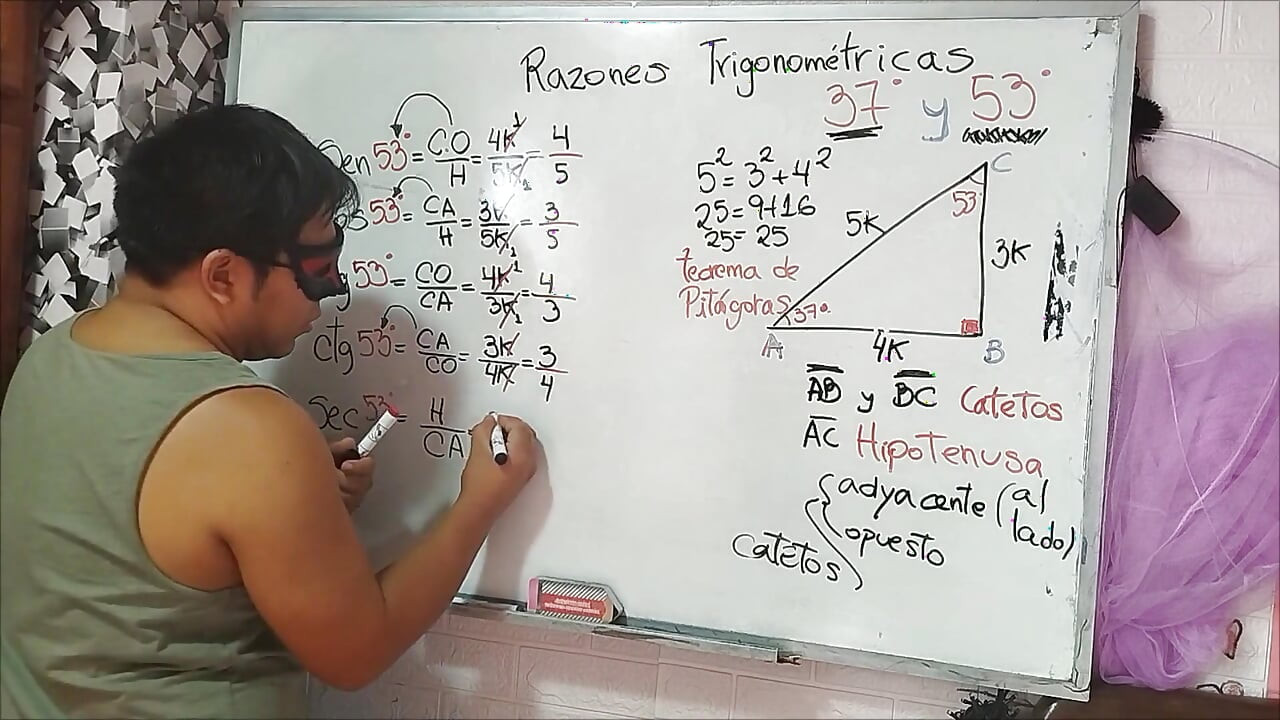 Razones Trigonométricas
37° y 53°
Sen 53° = CO/H = 4K/5K = 4/5
53° = CA/H = 3K/5K = 3/5
53° = CO/CA = 4K/3K = 4/3
ctg 53° = CA/CO = 3K/4K = 3/4
Sec 53° = H/CA
5² = 3² + 4²
25 = 9+16
25 = 25
teorema de
Pitágoras
C
53
5K
3K
37°
A
4K
B
AB y BC Catetos
AC Hipotenusa
Catetos
adyacente (al
lado)
opuesto